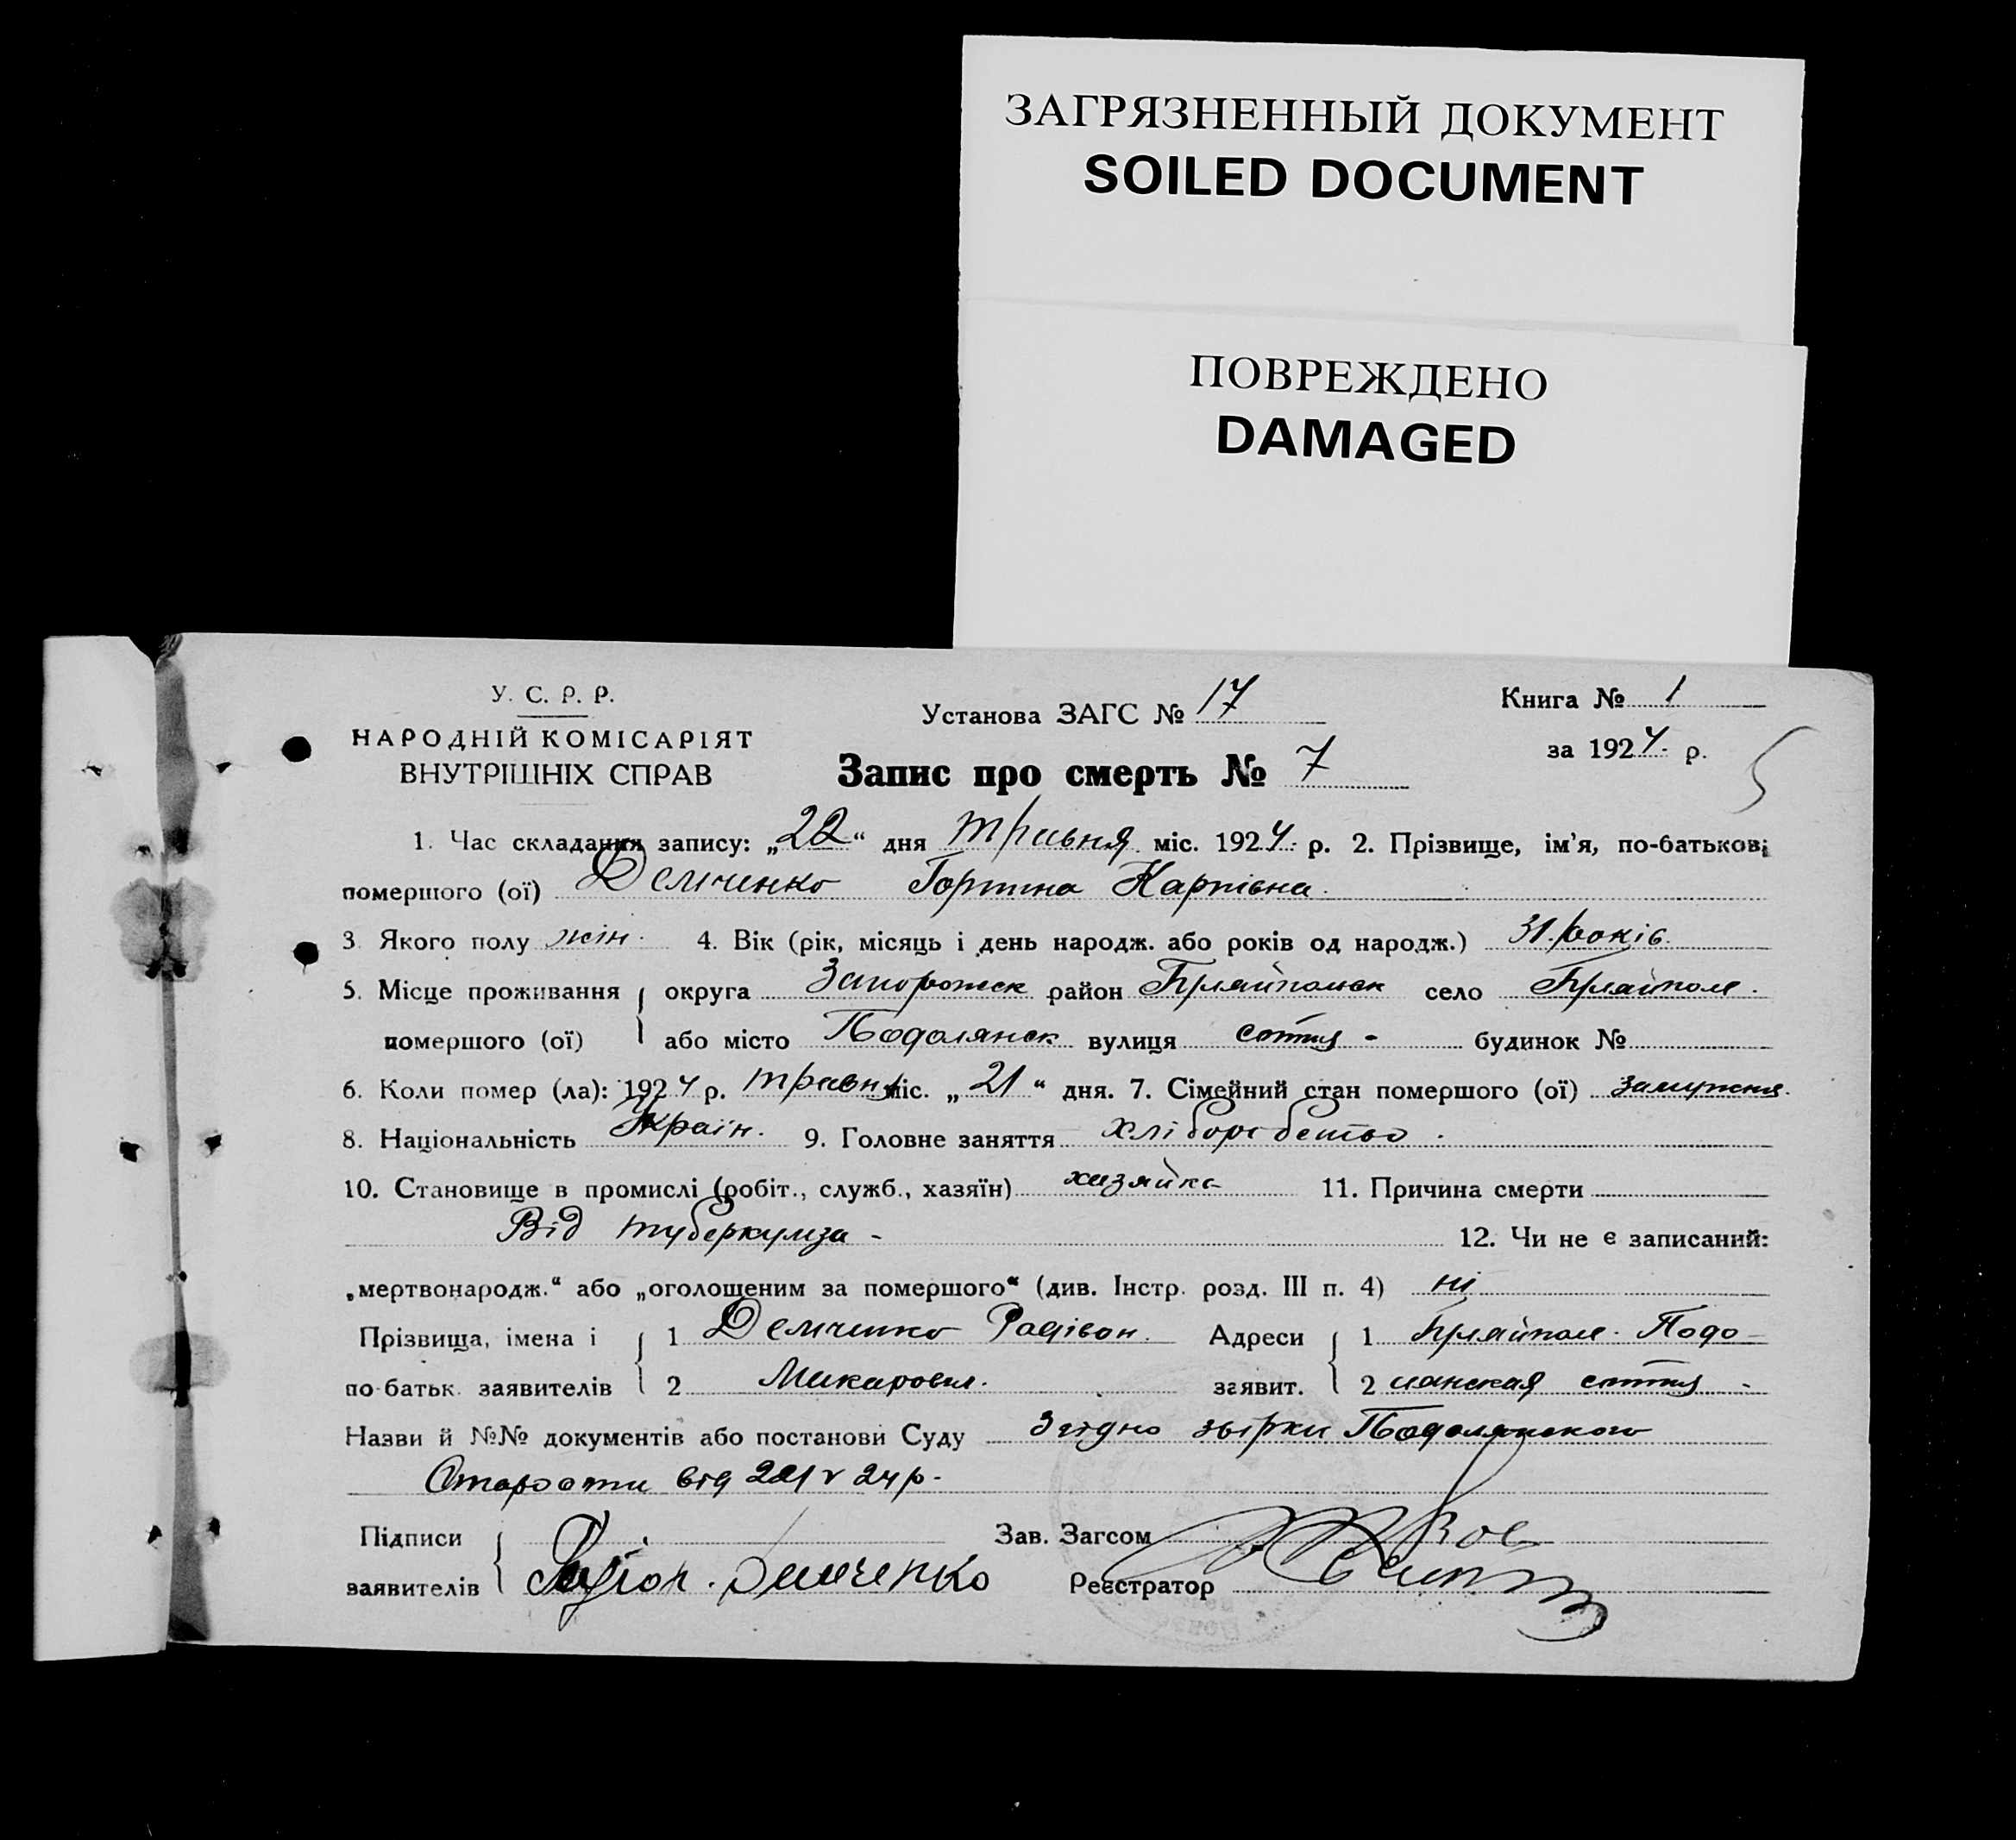 ЗАГРЯЗНЕННЫЙ ДОКУМЕНТ
SOILED DOCUMENT
ПОВРЕЖДЕНО
DAMAGED
У. С. Р. Р.
НАРОДНІЙ КОМІСАРІЯТ
ВНУТРІШНІХ СПРАВ
Установа ЗАГС № 17
Запис про смерть № 7
Книга № 1
за 1924 р.
1. Час складання запису: „22“ дня травня міс. 1924 р. 2. Прізвище, ім'я, по-батькові
помершого (ої) Демченко Горпина Карпівна.
3. Якого полу жін. 4. Вік (рік, місяць і день народж. або років од народж.) 31. років.
5. Місце проживання округа Запорожск район село
помершого (ої) або місто Подолянск вулиця сотня - будинок №
6. Коли помер (ла): 1924 р. травня міс. „21“ дня. 7. Сімейний стан помершого (ої) замужня.
8. Національність Україн. 9. Головне заняття хліборобство.
10. Становище в промислі (робіт., служб., хазяїн) хазяйка 11. Причина смерти
Від туберкульза - 12. Чи не є записаний:
„мертвонародж.“ або „оголошеним за помершого“ (див. Інстр. розд. III п. 4) ні
Прізвища, імена і 1 Демченко Радівон. Адреси 1 Подо-
по-батьк. заявителів 2 Макарович. заявит. 2 лянская сотня -
Назви й №№ документів або постанови Суду Згідно Подолянского
Старости від 24 р.
Підписи Зав. Загсом
заявителів Радіон. Демченко Реєстратор